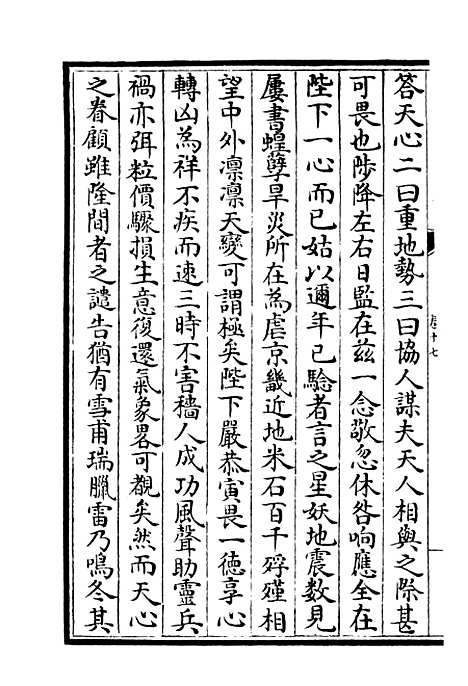 答天心二曰重地勢三曰協人謀夫天人相與之際甚
可畏也陟降左右日監在兹一念敬忽休咎响應全在
陛下一心而已姑以邇年已驗者言之星妖地震數見
屢書蝗孽旱災所在為虐京畿近地米石百千殍殣相
望中外凛凛天變可謂極矣陛下嚴恭寅畏一徳享心
轉凶為祥不疾而速三時不害穡人成功風聲助靈兵
禍亦弭粒價驟損生意復還氣象畧可觀矣然而天心
之眷顧雖隆間者之譴告猶有雪甫瑞臘雷乃鳴冬其
卷十七